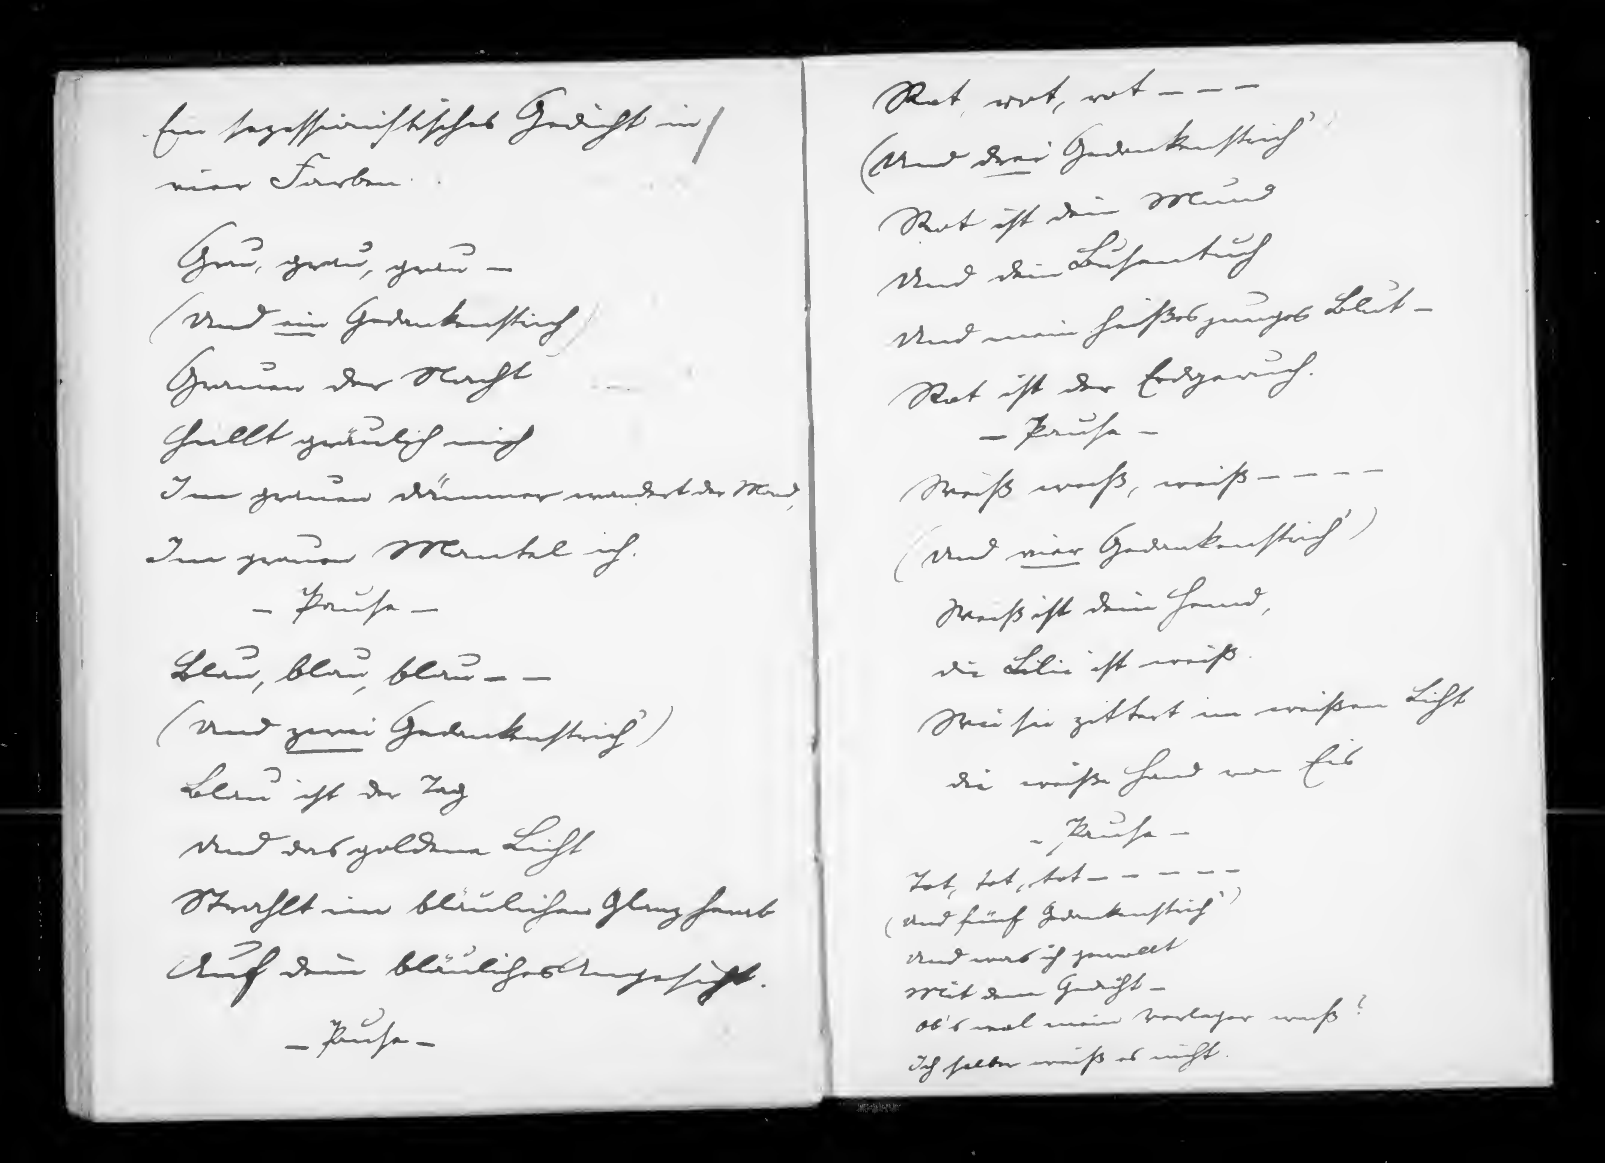 Ein sezessionistisches Gedicht in
vier Farben.
Grau, grau, grau –
(Und ein Gedankenstrich)
Grauen der Nacht
Hüllt gräulich mich
Im grauen Dämmer wandert der Mond,
Im grauen Mantel ich.
– Pause –
Blau, blau, blau – –
(Und zwei Gedankenstrich')
Blau ist der Tag
Und das goldene Licht
Strahlt im bläulichen Glanz herab
Auf dein bläuliches Angesicht.
– Pause –
Rot, rot, rot – – –
(Und drei Gedankenstrich'
Rot ist dein Mund
Und dein Busentuch
Und mein heißes junges Blut –
Rot ist der Erdgeruch.
– Pause –
Weiß weiß, weiß – – – –
(Und vier Gedankenstrich')
Weiß ist dein Hemd,
die Lilie ist weiß.
Wie sie zittert im weißen Licht
die weiße Hand von Eis
– Pause –
Tot, tot, tot – – – – –
(Und fünf Gedankenstrich')
Und was ich gewollt
Mit dem Gedicht –
Ob's wol mein Verleger weiß?
Ich selber weiß es nicht.